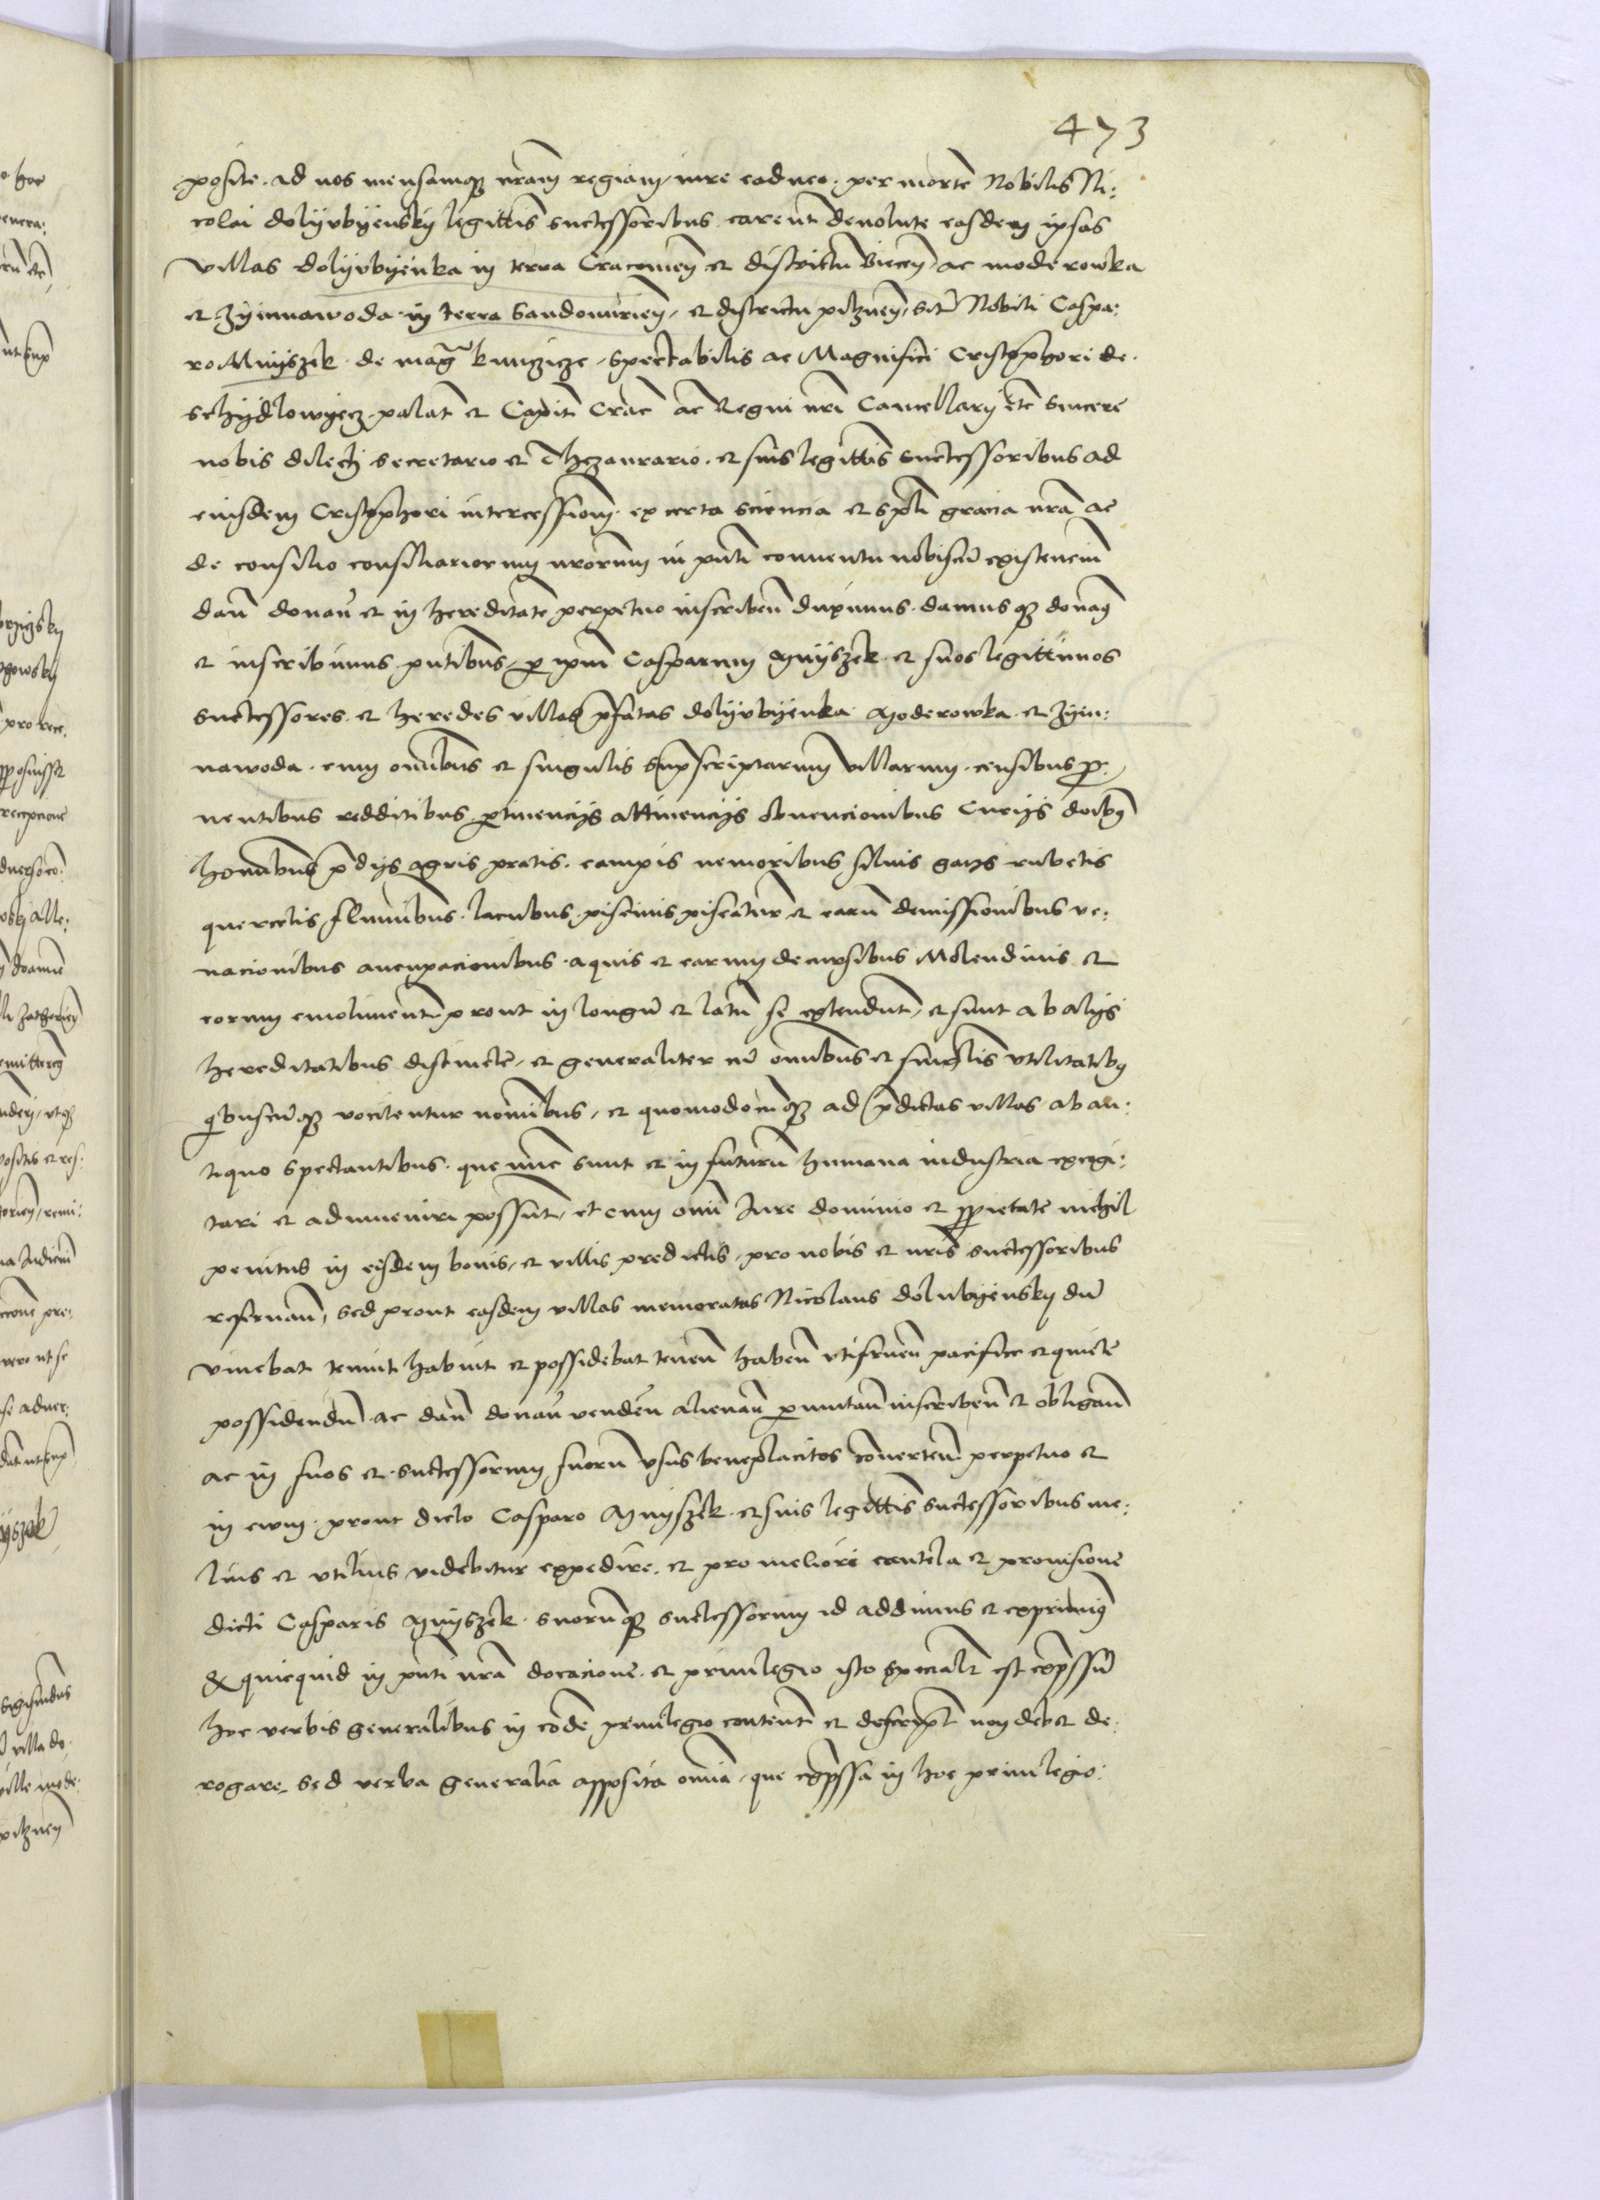 473
posite ad nos mensamq3 nram regiam iure caduco per morte Nobilis Ni:
colai dolyvbyensky legittis successoribus carent devolute easdem ipsas
villas dolyvbyenka in terra Cracovien et districtu Biecen ac moderowka
et zymnawoda in terra Sandomirien et districtu pilznen sit Nobili Caspa:
ro Mnyszek de mag kunczicze spectabilis ac Magnifici Cristophori de
schydlowyecz palat et Capit Crac ac Regni nri Cancellary etc sincere
nobis dilecti secretario et Thezaurario et suis legittis successoribus ad
eiusdem Cristophori intercession ex certa sciencia et spali gracia nra ac
de consilio consiliariorum nrorum in pnti conventu nobiscu existencium
dan donan et in hereditate perpetuo inscriben duximus damus q3 donam
et inscribimus pntibus per ipm Casparum Mnyszek et suos legittimos
successores et heredes villas pfatas dolyvbyenka Moderowka et zym:
nawoda cum omibus et singulis supscriptarum villarum censibus pro
ventibus redditibus ptinencys attinencys obvencionibus Curys doibus
hominibus pdys agris pratis campis nemoribus silvis gays rubetis
quercetis fluminibus lacubus piscinis piscatur et earu demissionibus ve:
nacionibus aucupacionibus aquis et earum decursibus Molendinis et
eorum emoliment prout in longu et latu se extendunt et sunt ab alys
hereditatibus distincte et generaliter cu omibus et singlis vtilitatibus
quibuscuq3 vocitentur nomibus et quomodocuq3 ad pdictas villas ab an:
tiquo spectantibus que nunc sunt et in futuru humana industria excogi:
tari et adinveniri possunt et cum omi Iure dominio et pprietate nichil
penitus in eisdem bonis et villis predictis pro nobis et nris successoribus
reservan sed prout easdem villas memoratas Nicolaus dolubyensky du
vivebat tenuit habuit et possidebat tenen haben vtifruen pacifice et quiete
possidendu ac dan donan venden alienan pmutan inscriben et obligan
ac in suos et successorum suoru vsus beneplacitos converten perpetuo et
in evum prout dicto Casparo Mnyszek et suis legittis successoribus me:
lius et vtilius videbitur expedire et pro meliori cautela et provisione
dicti Casparis Mnyszek suoruq3 successorum id addimus et exprimimus
quicquid in pnti nra donacione et privilegio isto specialr est expssu
hoc verbis generalibus in eode privilegio content et descript non debet de:
rogare sed verba generalia apposita omia que expssa in hoc privilegio: